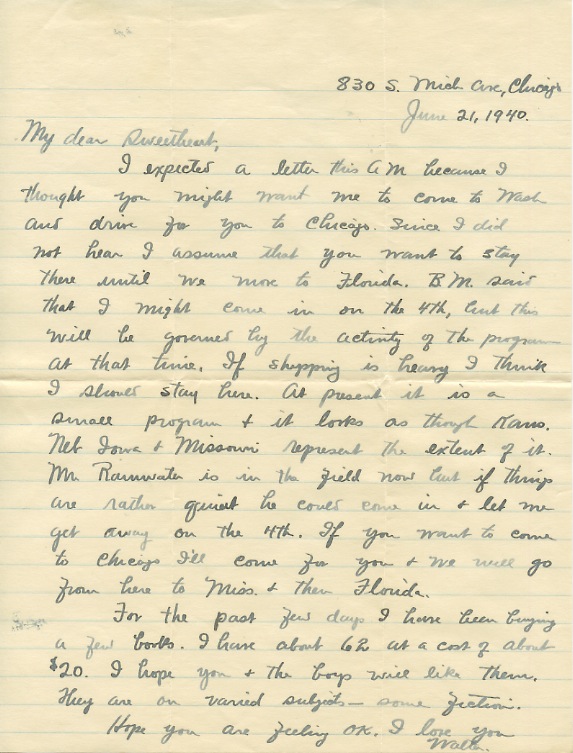 830 S. Mich Ave, Chicago
June 21, 1940.
My dear Sweetheart,
I expected a letter this AM because I
thought you might want me to come to Wash
and drive for you to Chicago. Since I did
not hear I assume that you want to stay
there until we move to Florida. B.M. said
that I might come in on the 4th, but this
will be governed by the activity of the program
at that time. If shopping is heavy I think
I should stay here. At present it is a
small program & it looks as though Kans.
Neb Iowa & Missouri represent the extent of it.
Mr Rainwater is in the field now but if things
are rather quiet he could come in & let me
get away on the 4th. If you want to come
to Chicago I'll come for you & we will go
from here to Miss. & then Florida.
For the past few days I have been buying
a few books. I have about 62 at a cost of about
$20. I hope you & the boys will like them.
They are on varied subjects – some fiction.
Hope you are feeling OK. I love you
Walter